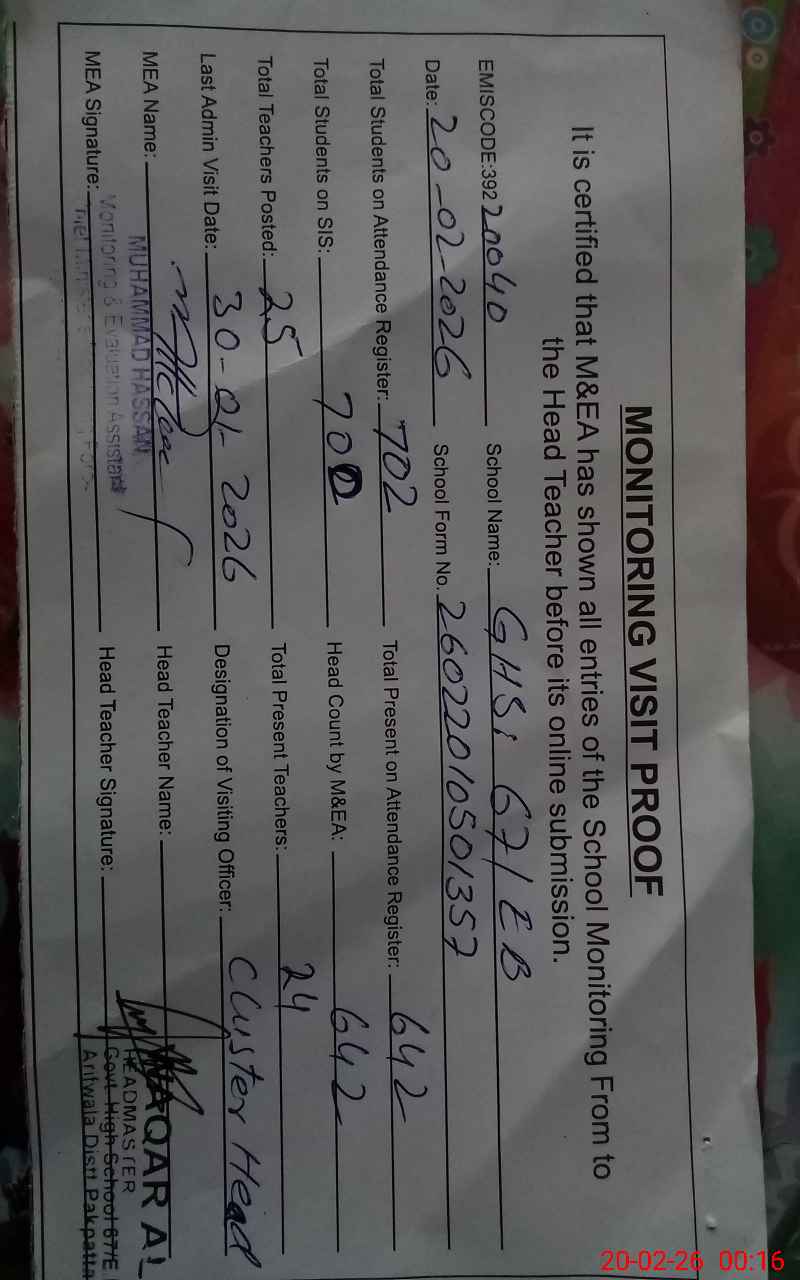 MONITORING VISIT PROOF
It is certified that M&EA has shown all entries of the School Monitoring From to
the Head Teacher before its online submission.
EMISCODE:39220040 School Name: GHS; 67/EB
Date: 20-02-2026 School Form No. 26022010501357
Total Students on Attendance Register: 702 Total Present on Attendance Register: 642
Total Students on SIS: 700 Head Count by M&EA: 642
Total Teachers Posted: 25 Total Present Teachers: 24
Last Admin Visit Date: 30-01-2026 Designation of Visiting Officer: Cluster Head
MEA Name: Head Teacher Name:
MUHAMMAD HASSAN WAQAR A
MEA Signature: Head Teacher Signature:
Monitoring & Evaluation Assistant HEADMASTER
Govt. High School 67/E
Arifwala Distt Pakpatta
20-02-26 00:16